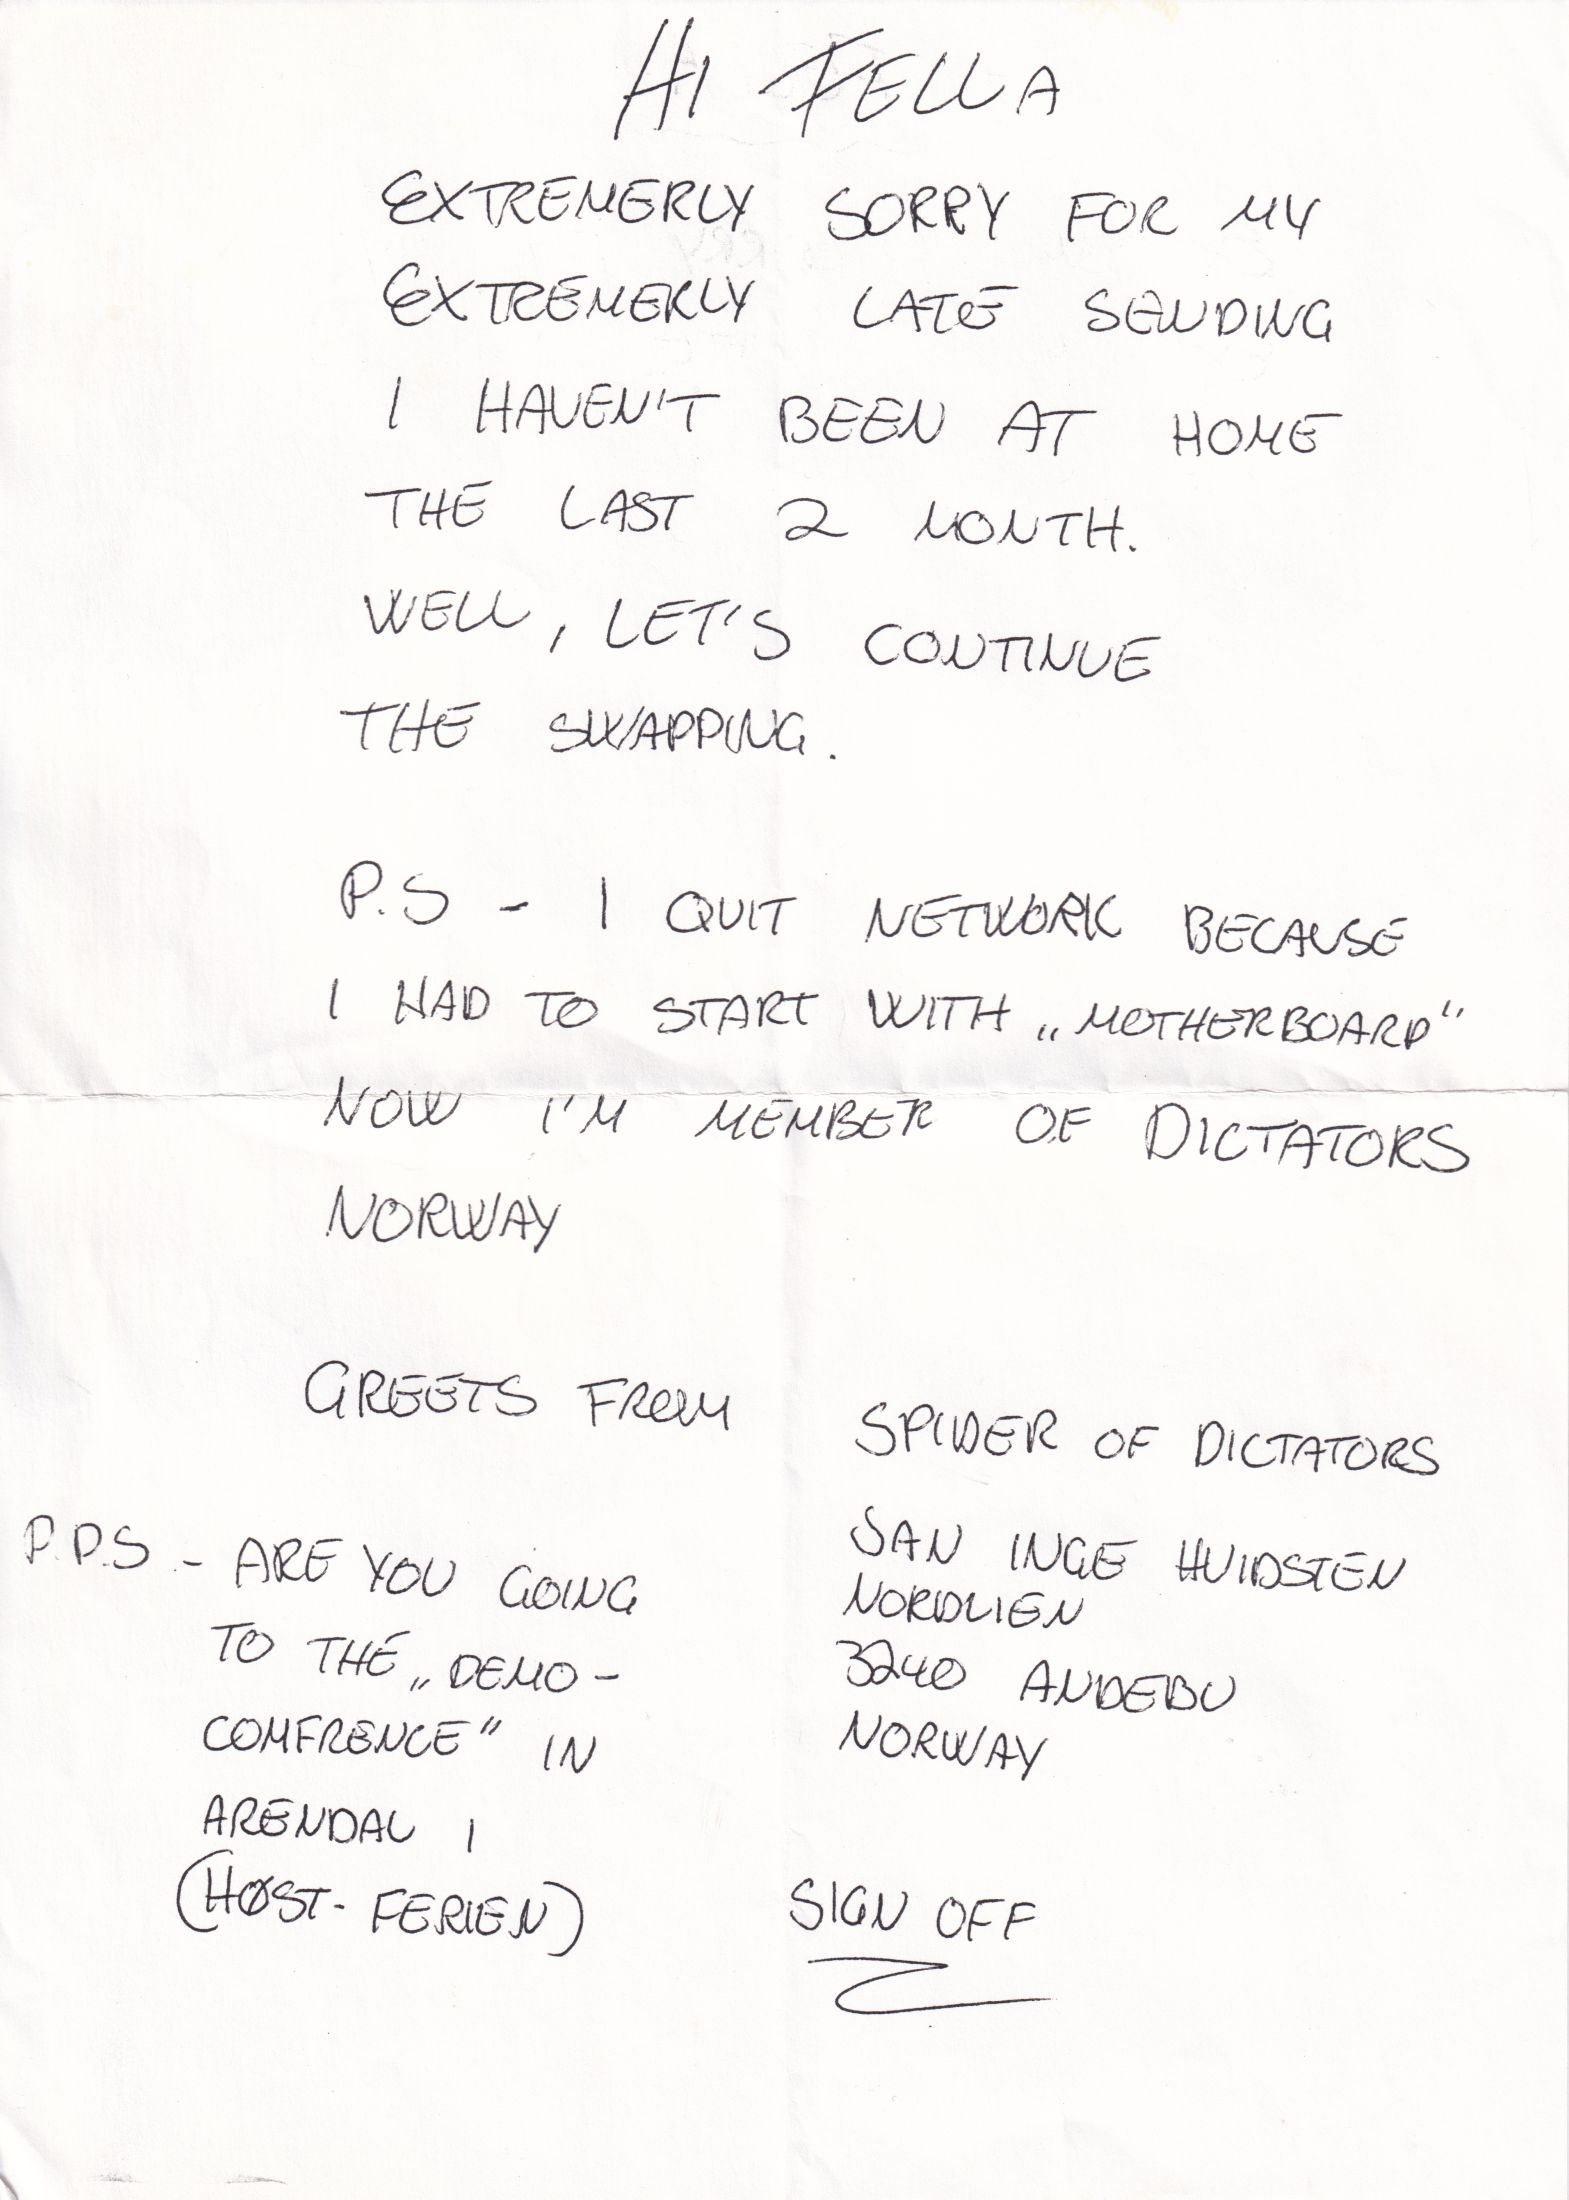 HI FELLA
EXTREMERLY SORRY FOR MY
EXTREMERLY LATE SENDING
I HAVEN'T BEEN AT HOME
THE LAST 2 MONTH.
WELL, LET'S CONTINUE
THE SWAPPING.
P.S - I QUIT NETWORK BECAUSE
I HAD TO START WITH „MOTHERBOARD“
NOW I'M MEMBER OF DICTATORS
NORWAY
GREETS FROM
SPIDER OF DICTATORS
JAN INGE HVIDSTEN
NORDLIEN
3240 ANDEBU
NORWAY
P.P.S - ARE YOU GOING
TO THE „DEMO-
COMFRENCE“ IN
ARENDAL I
(HØST-FERIEN)
SIGN OFF